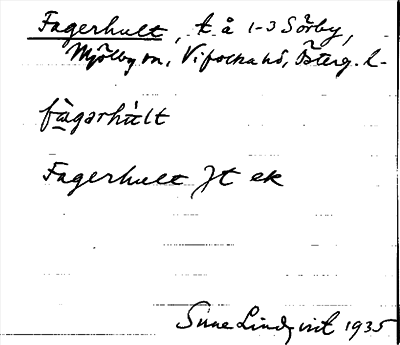 Fagerhult, t. å 1-3 Sörby,
Mjölby sn, Vifolka hd, Österg. l.
fàgərhúlt
Fagerhult Jt ek
Sune Lindqvist 1935